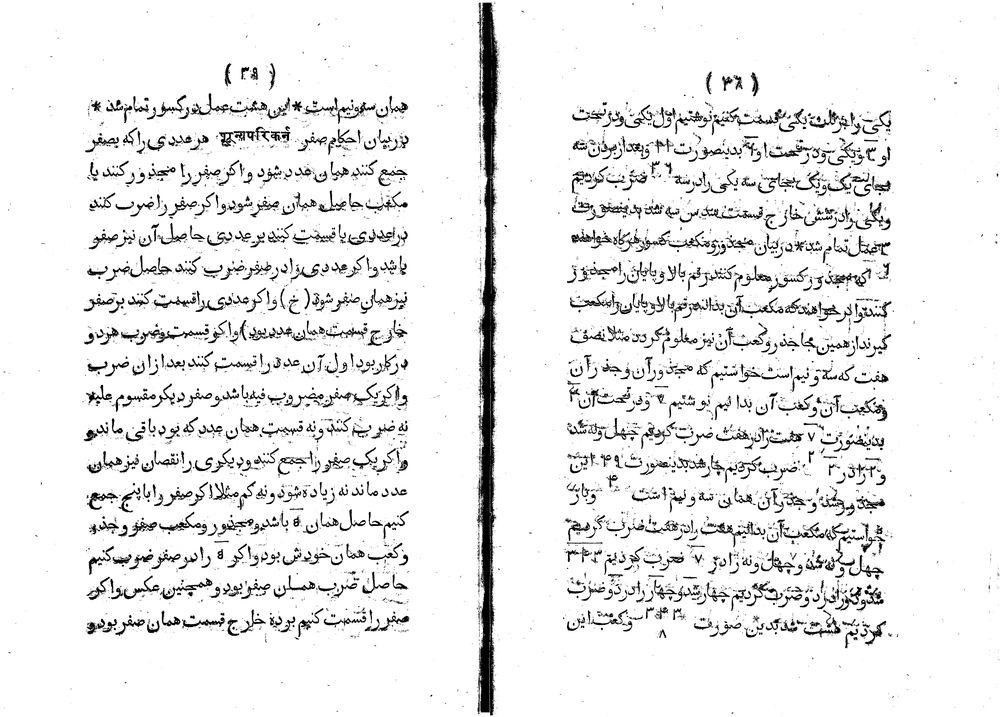 ( ۳۸ )
یکی و اجزالت یکی قسمت کنیم نوشتیم اول یکی و در تحت
او ۳ و یکی و در تحت او ۶ بدینصورت و بعد از بردن سه
بجای یک و یک بجای سه یکی را در سه ضرب کردیم
و یکی را در شش خارج قسمت سدس سه شد بدینصورت
۳ عمل تمام شد * در بیان مجذور و مکعب کسور هرگاه خواهند
۶ که مجذور کسور معلوم کنند رقم بالا و پایان را مجذور
کنند و اگر خواهند که مکعب آن بدانند رقم بالا و پایان را مکعب
گیرند از همین جا جذر و کعب آن نیز معلوم گردد مثلا نصف
هفت که سه و نیم است خواستیم که مجذور آن و جذر آن
و مکعب آن و کعب آن بدانیم نوشتیم ۷ و در تحت آن ۲
بدینصورت ۷ هفت را در هفت ضرب کردیم چهل و نه شد
و ۲ را در ۲ ضرب کردیم چار شد بدینصورت ۴۹ این
مجذور شد و جذر آن همان سه و نیم است ۴ و باز
خواستیم که مکعب آن بدانیم هفت را در هفت ضرب کردیم
چهل و نه شد و چهل و نه را در ۷ ضرب کردیم ۳۴۳
شد و دو را در دو ضرب کردیم چهار شد و چهار را در دو ضرب
کردیم هشت شد بدین صورت ۳۴۳ و کعب این
۸
( ۳۹ )
همان سه و نیم است * این هشت عمل در کسور تمام شد *
در بیان احکام صفر शून्यपरिकर्न هر عددی را که بصفر
جمع کنند همان عدد بشود و اگر صفر را مجذور کنند یا
مکعب حاصل همان صفر شود و اگر صفر را ضرب کنند
در عددی یا قسمت کنند بر عددی حاصل آن نیز صفر
باشد و اگر عددی را در صفر ضرب کنند حاصل ضرب
نیز همان صفر شود ( خ ) و اگر عددی را قسمت کنند بر صفر
خارج قسمت همان عدد بود ) و اگر قسمت و ضرب هر دو
در کار بود اول آن عدد را قسمت کنند بعد ازان ضرب
و اگر یک صفر مضروب فیه باشد و صفر دیگر مقسوم علیه
نه ضرب کنند و نه قسمت همان عدد که بود باقی ماند و
و اگر یک صفر را جمع کنند و دیگری را نقصان نیز همان
عدد ماند نه زیاده شود و نه کم مثلا اگر صفر را با پنج جمع
کنیم حاصل همان ۵ باشد و مجذور و مکعب صفر و جذر
و کعب همان خودش بود و اگر ۵ را در صفر ضرب کنیم
حاصل ضرب همان صفر بود و همچنین عکس و اگر
صفر را قسمت کنیم بر ده خارج قسمت همان صفر بود و